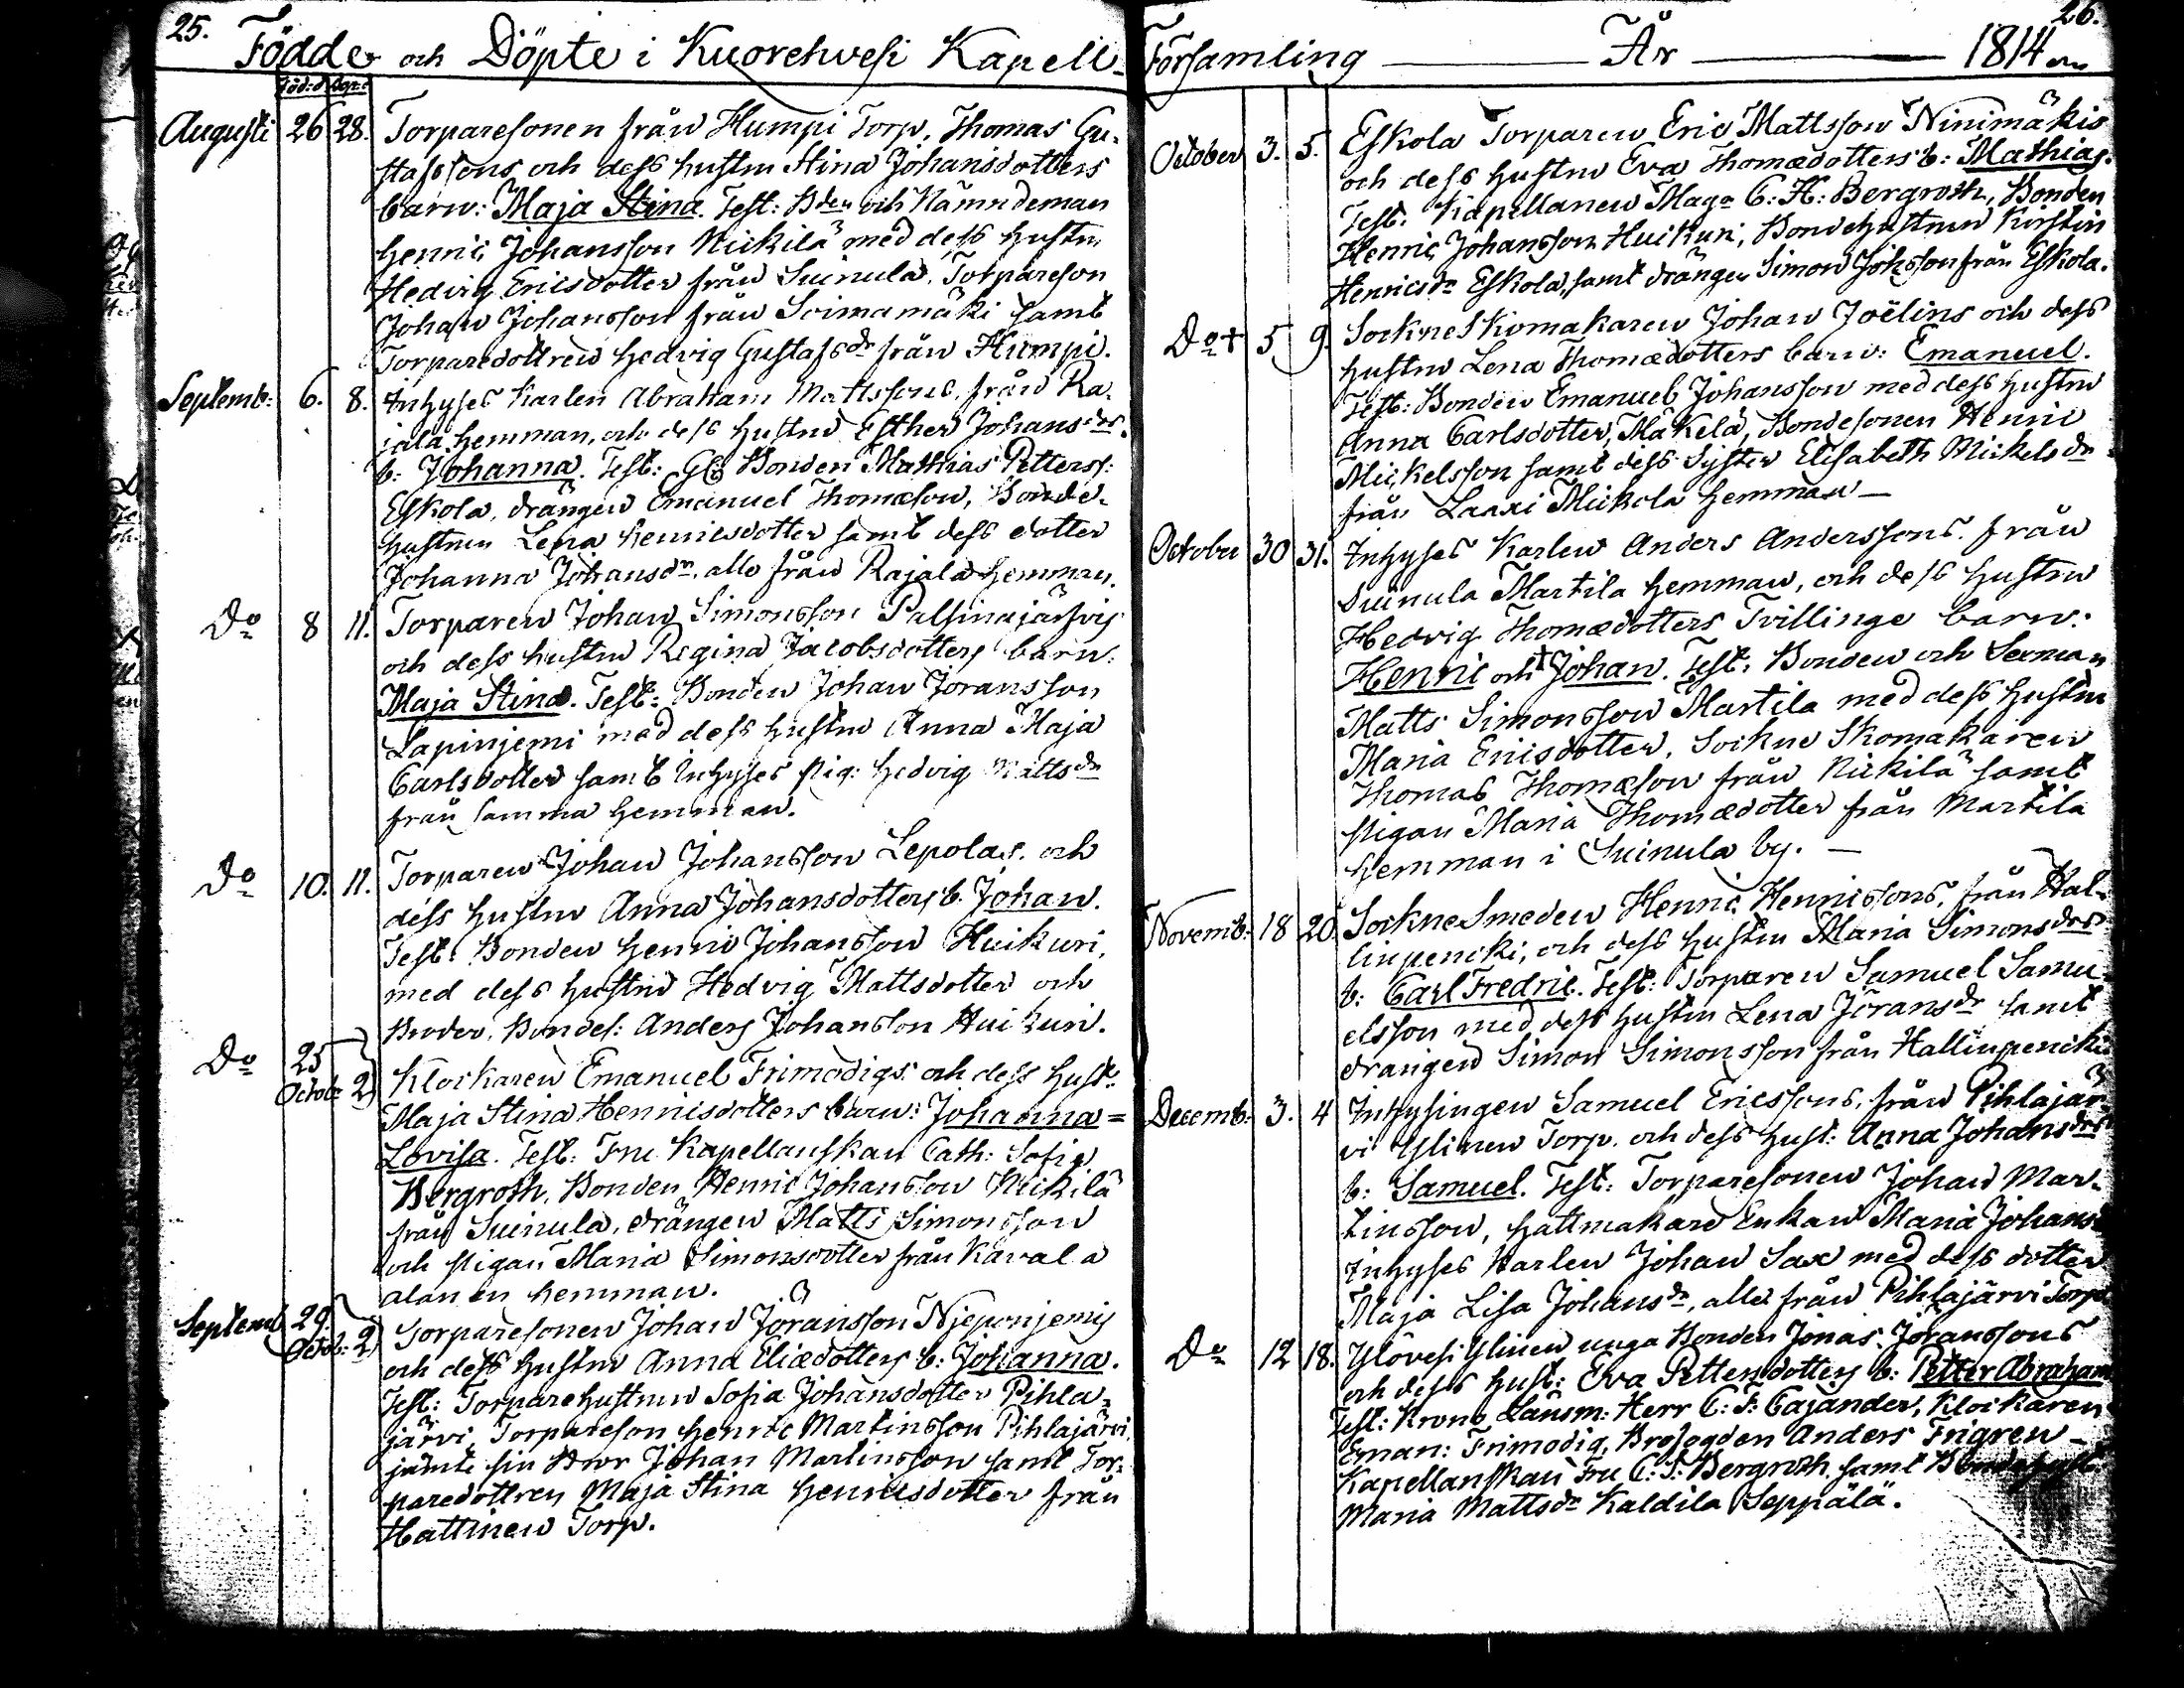 25.
Födde och Döpte i Kuorehvesi Kapell-
Född: Döpt:
Augusti 26 28. Torparesonen från Humpi Torp, Thomas Gu-
stafssons och dess hustru Stina Johansdotters
barn: Maja Stina. Test: Bden och Nämndeman
Henric Johansson Nickilä med dess hustru
Hedvig Ericsdotter från Suinula, Torpareson
Johan Johansson från Soimamäki samt
Torparedottren Hedvig Gustafsdr från Humpi.
Septemb: 6. 8. Inhyses Karlen Abraham Mattssons, från Ra-
jala hemman, och dess hustru Esther Johansdrs
b: Johanna. Test: Gl: Bonden Mathias Petterss:
Eskola, drängen Emanuel Thomæson, Bonde-
hustrun Lena Henricsdotter samt dess dotter
Johanna Johansdr, alle från Rajala hemman.
Do 8 11. Torparen Johan Simonsson Palsinajärfvis
och dess hustru Regina Jacobsdotters barn:
Maja Stina. Test: Bonden Johan Joransson
Lapinjemi med dess hustru Anna Maja
Carlsdotter samt Inhyses pig: Hedvig Mattsdr
från samma hemman.
Do 10. 11. Torparen Johan Johansson Lepolas och
dess hustru Anna Johansdotters b. Johan.
Test: Bonden Henric Johansson Huikuri,
med dess hustru Hedvig Mattsdotter och
Broder, Bondes: Anders Johansson Huikuri.
Do 25
Octob: 2 Klockaren Emanuel Frimodigs och dess hustr:
Maja Stina Henricsdotters barn: Johanna=
Lovisa. Test: Fru Kapellanskan Cath: Sofia
Bergroth, Bonden Henric Johansson Nickilä
från Suinula, drängen Matts Simonsson
och pigan Maria Simonsdotter från Kavala
alanen hemman.
Septemb 29.
Octob: 2 Torparesonen Johan Jöransson Njeponjemis
och dess hustru Anna Eliædotters b: Johanna.
Test: Torparehustrun Sofia Johansdotter Pihla-
järvi, Torpareson Henric Martinsson Pihlajärvi,
jämte sin Bror Johan Martinsson samt Tor-
paredottren Maja Stina Henricsdotter från
Hattinen Torp.
26.
Församling År 1814
October 3. 5. Eskola Torparen Eric Mattsson Ninimäkis
och dess hustru Eva Thomædotters b: Mathias.
Test: Kapellanen Mag: C: H: Bergroth, Bonden
Henric Johansson Huikuri, Bondehustrun Kirstin
Henricsdr Eskola, samt drängen Simon Johsson från Eskola.
Do † 5 9. Sockne Skomakaren Johan Joëlins och dess
hustru Lena Thomædotters barn: Emanuel.
Test: Bonden Emanuel Johansson med dess hustru
Anna Carlsdotter, Mäkelä, Bondesonen Henric
Mickelsson samt dess Syster Elisabeth Mickelsdr
från Laaxi Mickola hemman —
October 30 31. Inhyses Karlen Anders Anderssons från
Suinula Martila hemman, och dess hustru
Hedvig Thomædotters Tvillinge barn:
Henric och † Johan. Test: Bonden och Sexman
Matts Simonsson Martila med dess hustru
Maria Ericsdotter, Sockne Skomakaren
Thomas Thomæson från Nickilä samt
pigan Maria Thomædotter från Martila
hemman i Suinula by. —
Novemb: 18 20. Sockne Smeden Henric Henricssons, från Hal-
linpencki, och dess hustru Maria Simonsdrs
b: Carl Fredric. Test: Torparen Samuel Samu-
elsson med dess hustru Lena Jöransdr samt
drängen Simon Simonsson från Hallinpencki
Decemb: 3. 4 Inhysingen Samuel Ericssons, från Pihlajär
vi Ylinen Torp, och dess hust: Anna Johansdrs
b: Samuel. Test: Torparesonen Johan Mar-
tinsson, hattmakare Enkan Maria Johansd
Inhyses Karlen Johan Sax med dess dotter
Maja Lisa Johansdr, alle från Pihlajärvi Torp
Do 12 18. Ylövesi Ylinen unga Bonden Jonas Joranssons
och dess hust: Eva Pettersdotters b: Petter Abraham
Test: Krono Länsm: Herr C: F: Cajander, Klockaren
Eman: Frimodig, Brofogden Anders Frigren —
Kapellanskan Fru C: S: Bergroth samt
Maria Mattsdr Kaldila Seppälä.